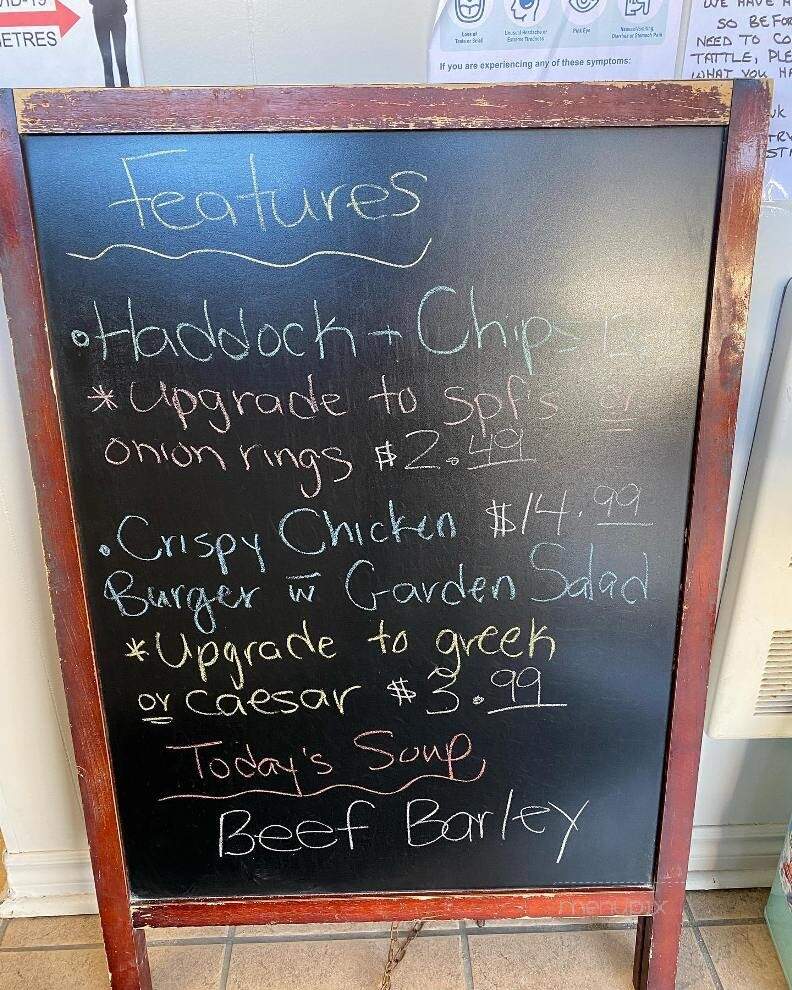 METRES
Loss of
Taste or Smell
Unusual Headache or
Extreme Tiredness
Pink Eye
If you are experiencing any of these symptoms:
WE HAVE
SO BEFOR
NEED TO CO
TATTLE, PLE
WHAT YOU HA
Features
•Haddock + Chips
*Upgrade to spf's or
onion rings $2.49
•Crispy Chicken $14.99
Burger w Garden Salad
*Upgrade to greek
or caesar $3.99
Today's Soup
Beef Barley
menupix